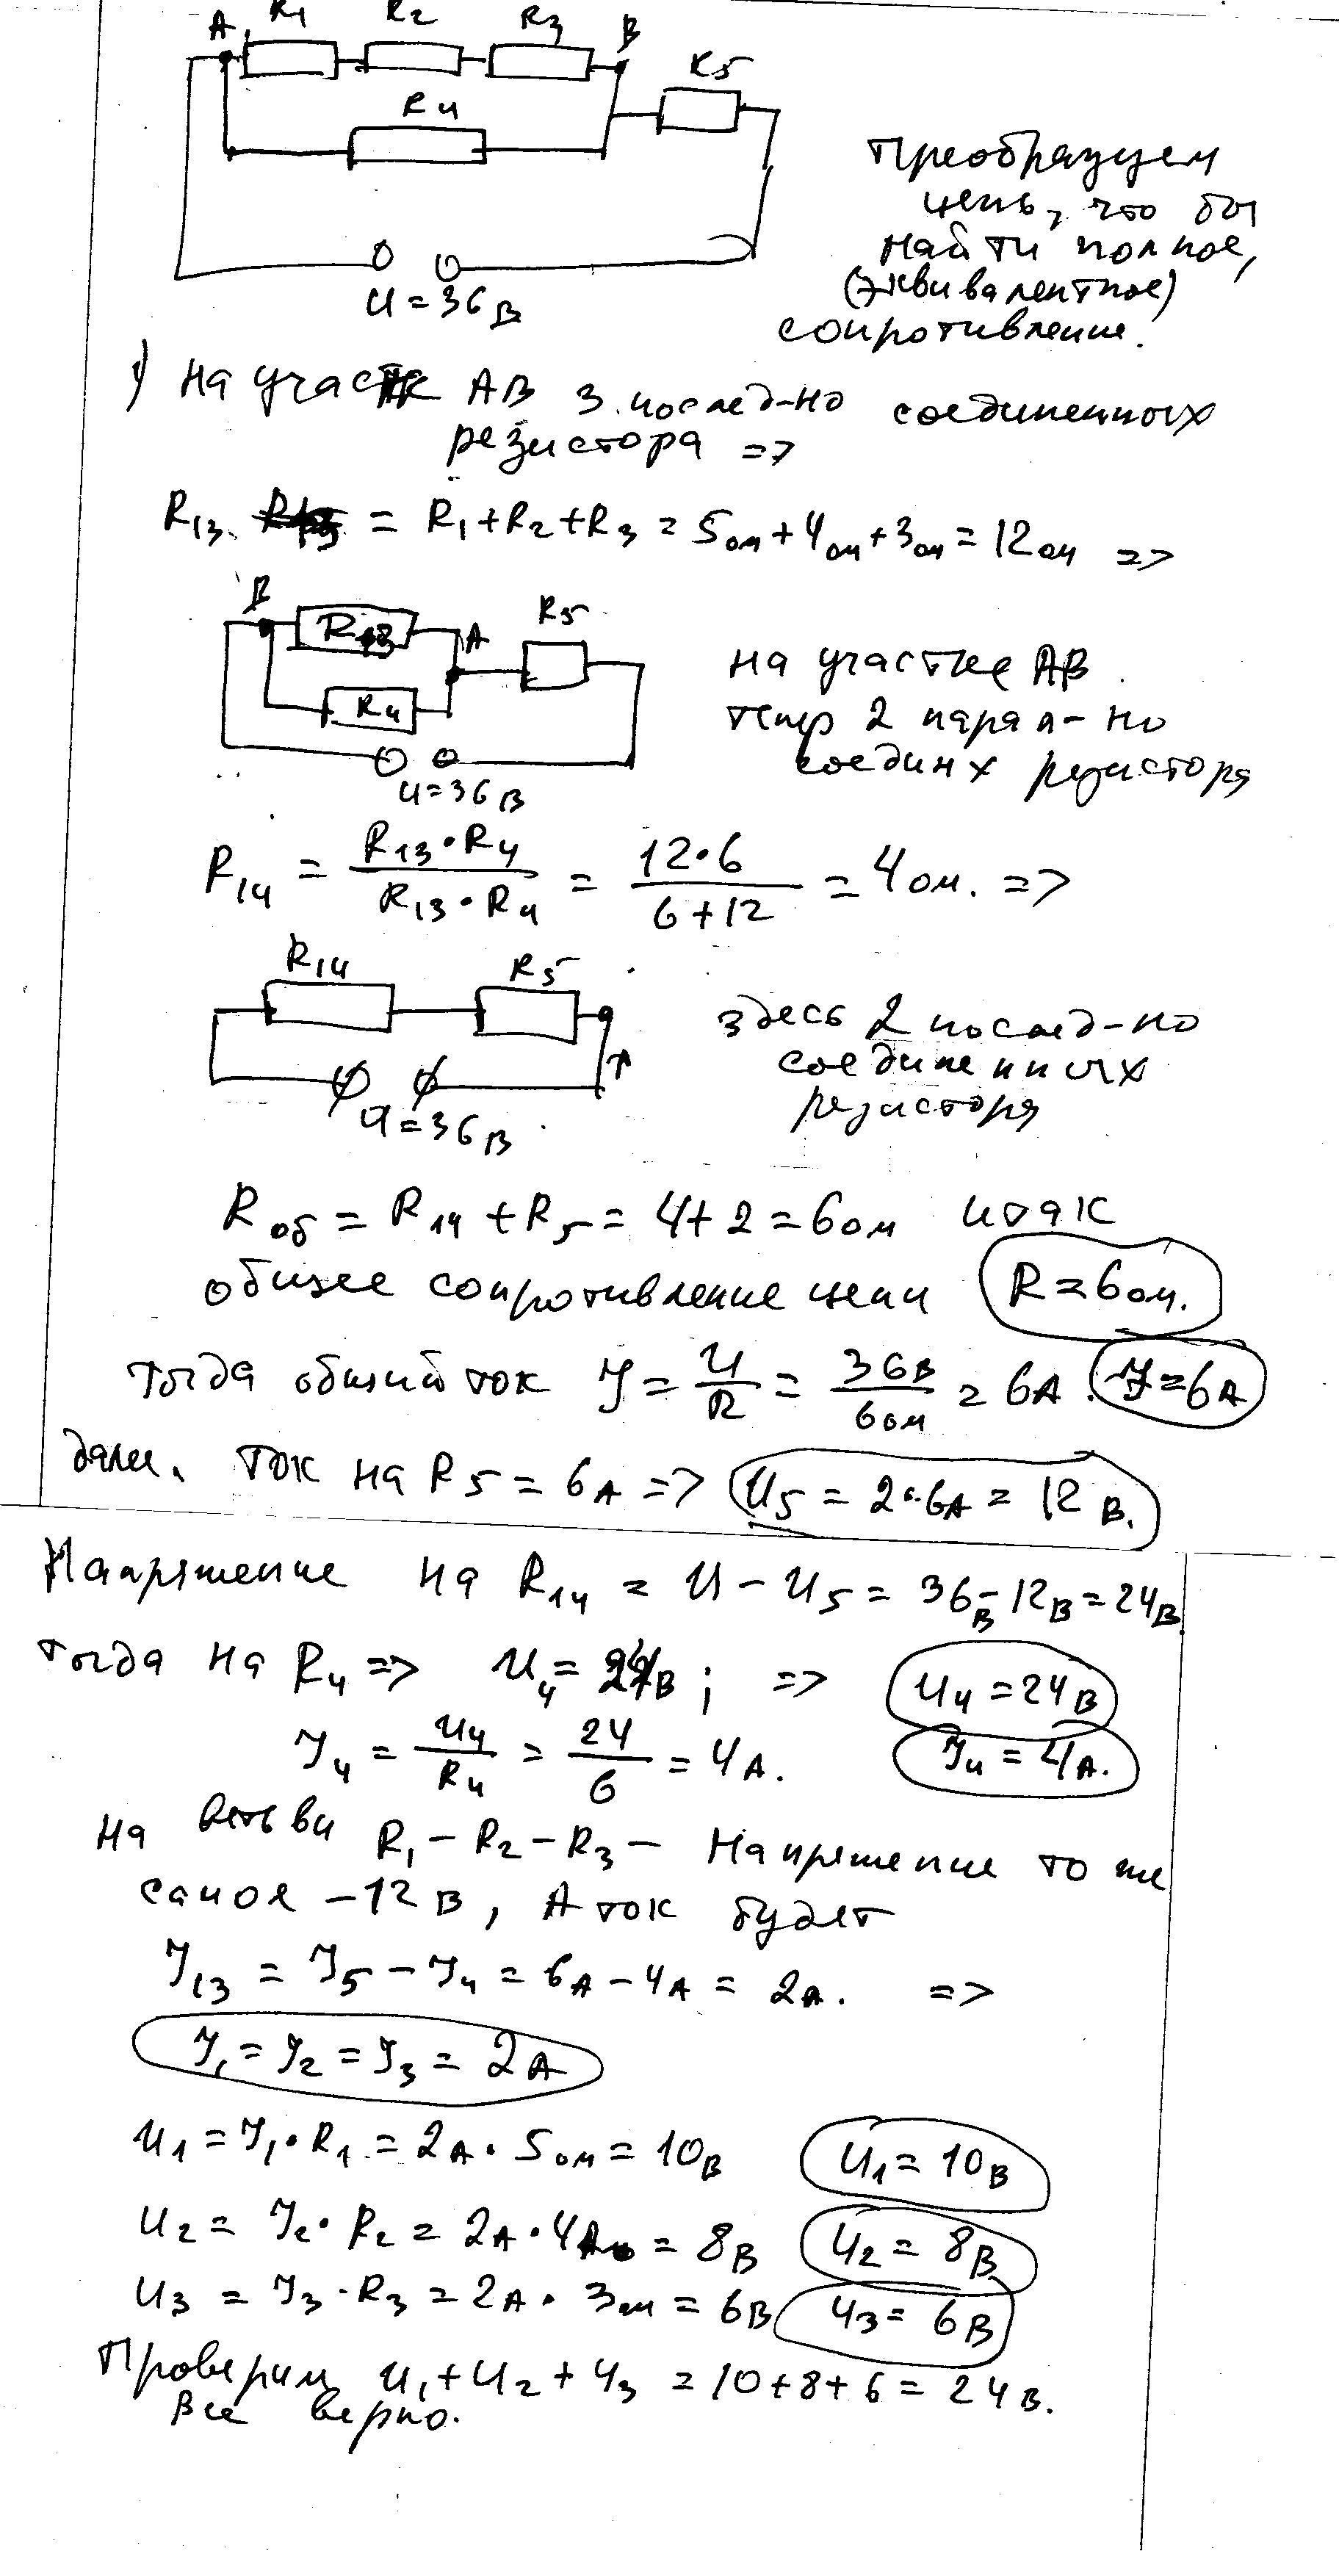 A R1 R2 R3 B R5
R4
U = 36В
Преобразуем
цепь, что бы
найти полное,
(эквивалентное)
сопротивление.
1) на участк АВ 3 послед-но соединенных
резистора =>
R13 = R1 + R2 + R3 = 5ом + 4ом + 3ом = 12ом =>
B R13 A R5
R4
U = 36В
на участке АВ
тепер 2 парал-но
соединх резистора
R14 = R13 · R4 / R13 · R4 = 12 · 6 / 6 + 12 = 4 ом. =>
R14 R5
U = 36В
здесь 2 послед-но
соединенных
резистора
Rоб = R14 + R5 = 4 + 2 = 6ом итак
общее сопротивление цепи R = 6ом.
тогда общий ток I = U / R = 36В / 6ом = 6А. I = 6А
дали. ток на R5 = 6А => U5 = 2·6А = 12 В.
Напряжение на R14 = U - U5 = 36В - 12В = 24В
тогда на R4 => U4 = 24В; => U4 = 24В
I4 = U4 / R4 = 24 / 6 = 4А. I4 = 4А.
на ветьви R1 - R2 - R3 - напряжение то же
самое - 12 В, А ток будет
I13 = I5 - I4 = 6А - 4А = 2А. =>
I1 = I2 = I3 = 2А
U1 = I1 · R1 = 2А · 5ом = 10В U1 = 10В
U2 = I2 · R2 = 2А · 4 = 8В U2 = 8В
U3 = I3 · R3 = 2А · 3ом = 6В U3 = 6В
Проверим U1 + U2 + U3 = 10 + 8 + 6 = 24В.
Все верно.